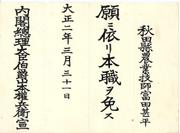 秋田縣農業技師富田甚平
願ニ依リ本職ヲ免ス
大正二年三月三十一日
內閣總理大臣伯爵山本權兵衞宣